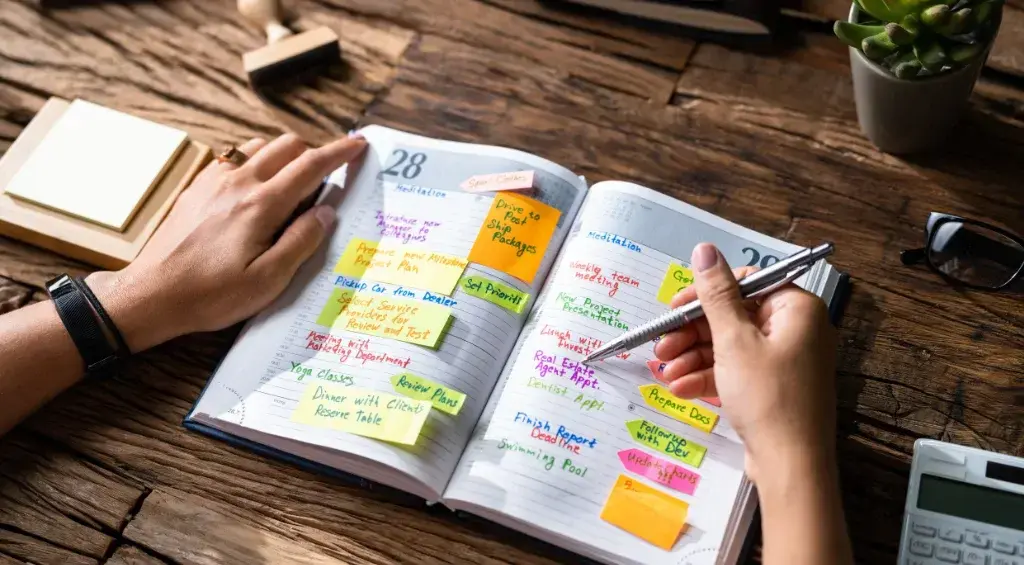 28
Meditation
Introduce new
Manager to
Colleagues
Prepare new Milestone
Project Plan
Pickup Car from Dealer
Select Service
Providers for
Review and Test
Meeting with
Marketing Department
Yoga Classes
Dinner with Clients
Reserve Table
Drive to
Post
Ship
Packages
Set Prioriti
Review Plans
Meditation
Weekly team
meeting
New Project
Presentation
Lunch with
Real Estate
Agent Appt.
Dentist Appt.
Finish Report
Deadline
Swimming Pool
Prepare Docs
Followup
with Dev